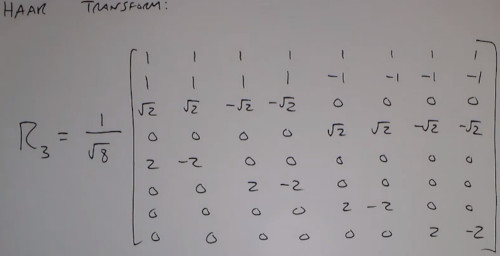 HAAR TRANSFORM:
1 1 1 1 1 1 1 1
1 1 1 1 -1 -1 -1 -1
√2 √2 -√2 -√2 0 0 0 0
R₃ = 1/√8 0 0 0 0 √2 √2 -√2 -√2
2 -2 0 0 0 0 0 0
0 0 2 -2 0 0 0 0
0 0 0 0 2 -2 0 0
0 0 0 0 0 0 2 -2